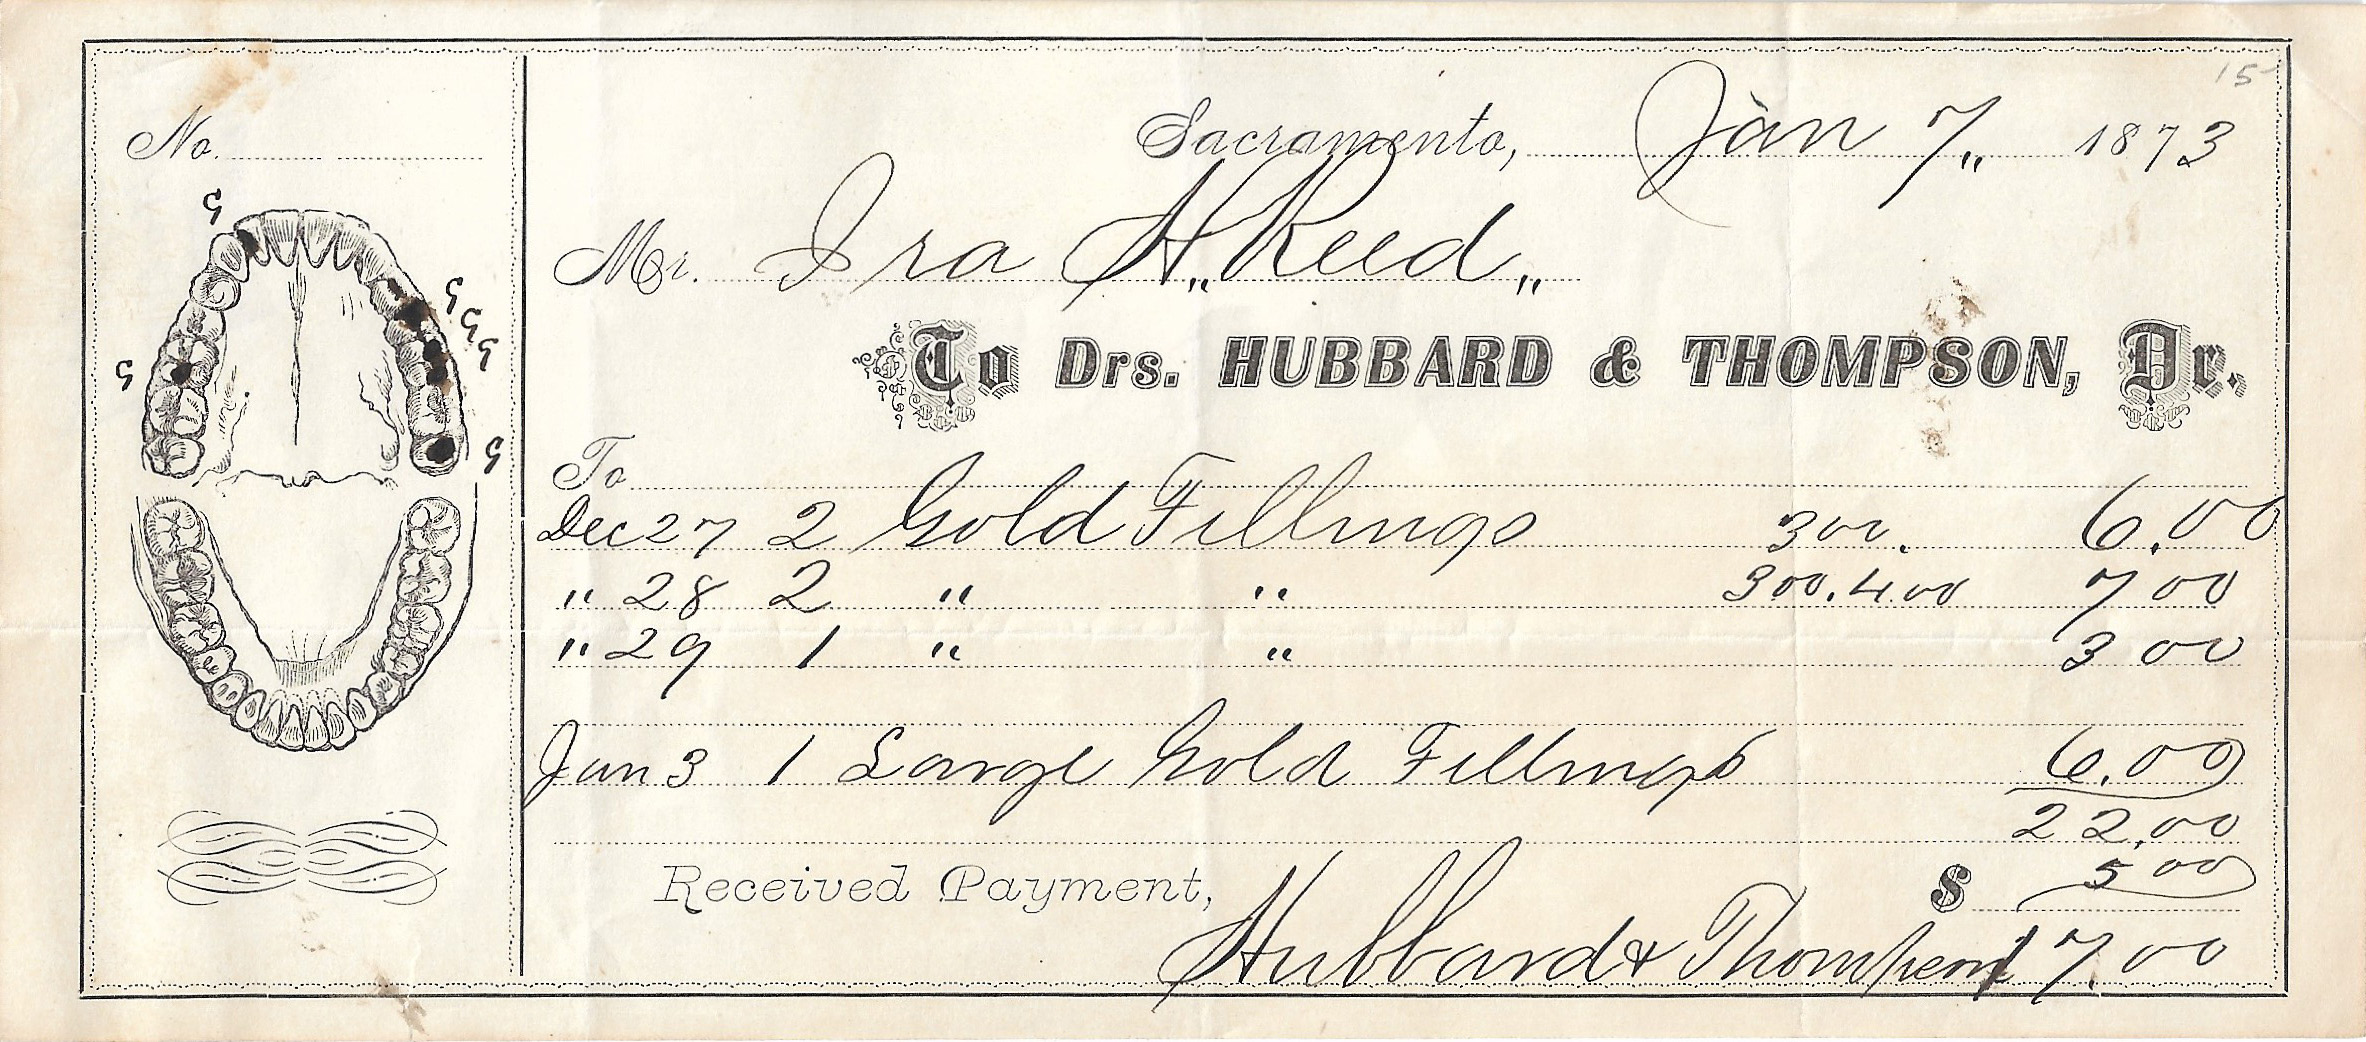 15
No.
Sacramento, Jan 7„ 1873
Mr. Ira H„ Reed„
To Drs. HUBBARD & THOMPSON, Dr.
To
Dec 27 2 Gold Fillings 300. 6.00
" 28 2 " " 300.400 7 00
" 29 1 " " 3 00
Jan 3 1 Large Gold Fillings 6.00
22.00
Received Payment, $ 5 00
Hubbard & Thompson 17.00
G
G
G
G
G
G